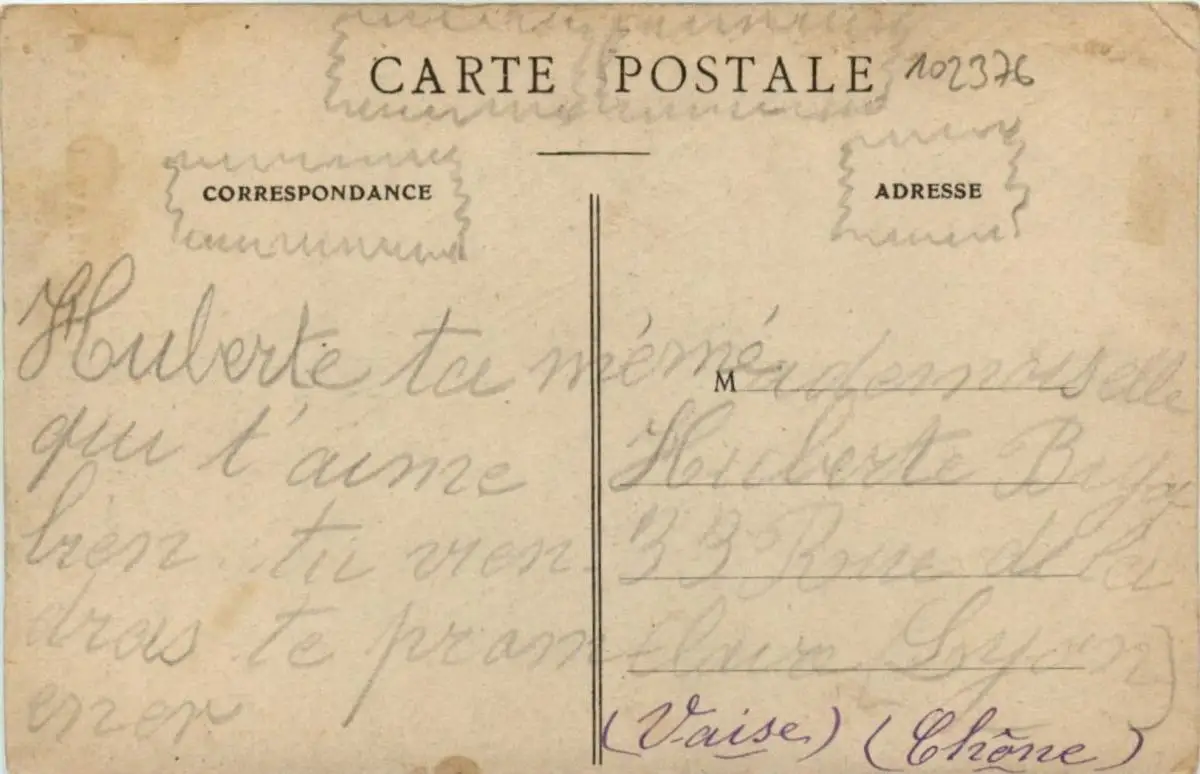 CARTE POSTALE 102376
CORRESPONDANCE
Huberte ta mémé
qui t'aime
bien tu vien
dras te prom
ener
ADRESSE
Mademoiselle
Huberte
33 Rue de la
Claire Lyon)
(Vaise) (Rhône)